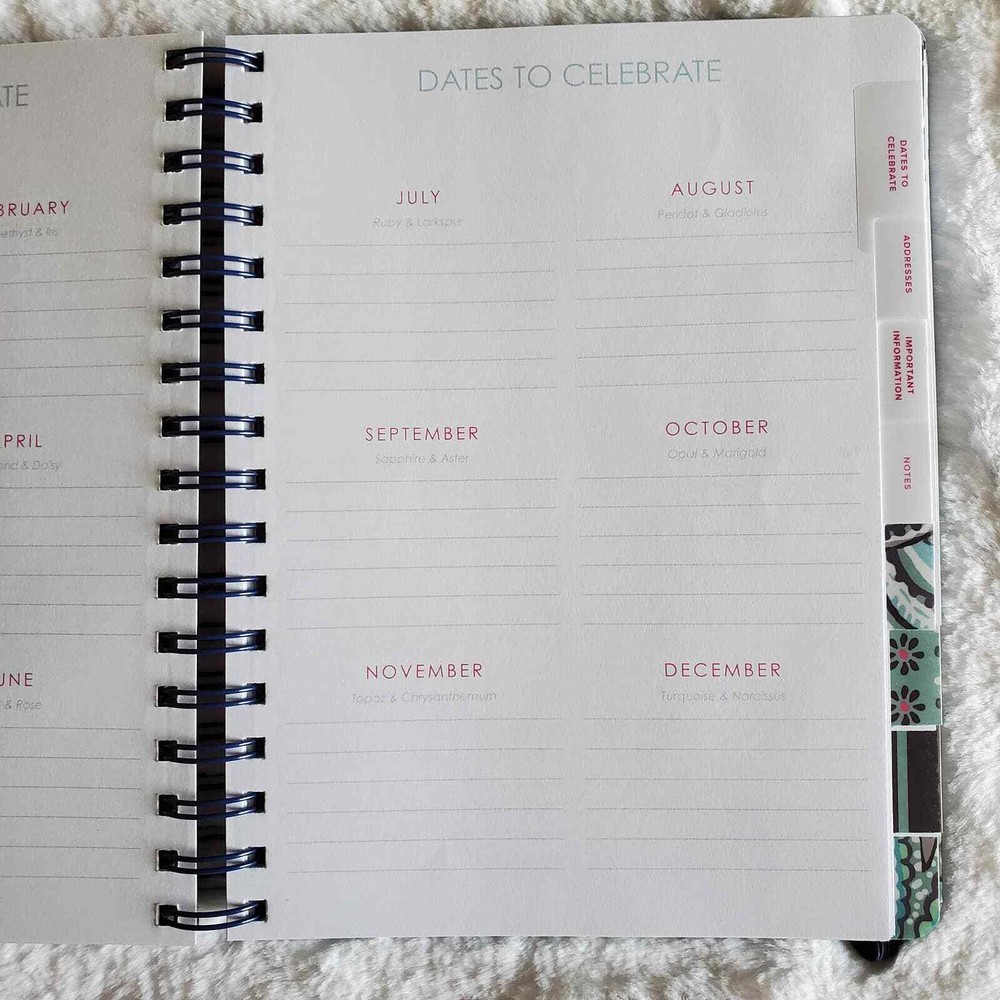 ATE
BRUARY
ethyst & Iris
PRIL
ond & Daisy
UNE
& Rose
DATES TO CELEBRATE
JULY
Ruby & Larkspur
AUGUST
Peridot & Gladiolus
SEPTEMBER
Sapphire & Aster
OCTOBER
Opal & Marigold
NOVEMBER
Topaz & Chrysanthemum
DECEMBER
Turquoise & Narcissus
DATES TO
CELEBRATE
ADDRESSES
IMPORTANT
INFORMATION
NOTES